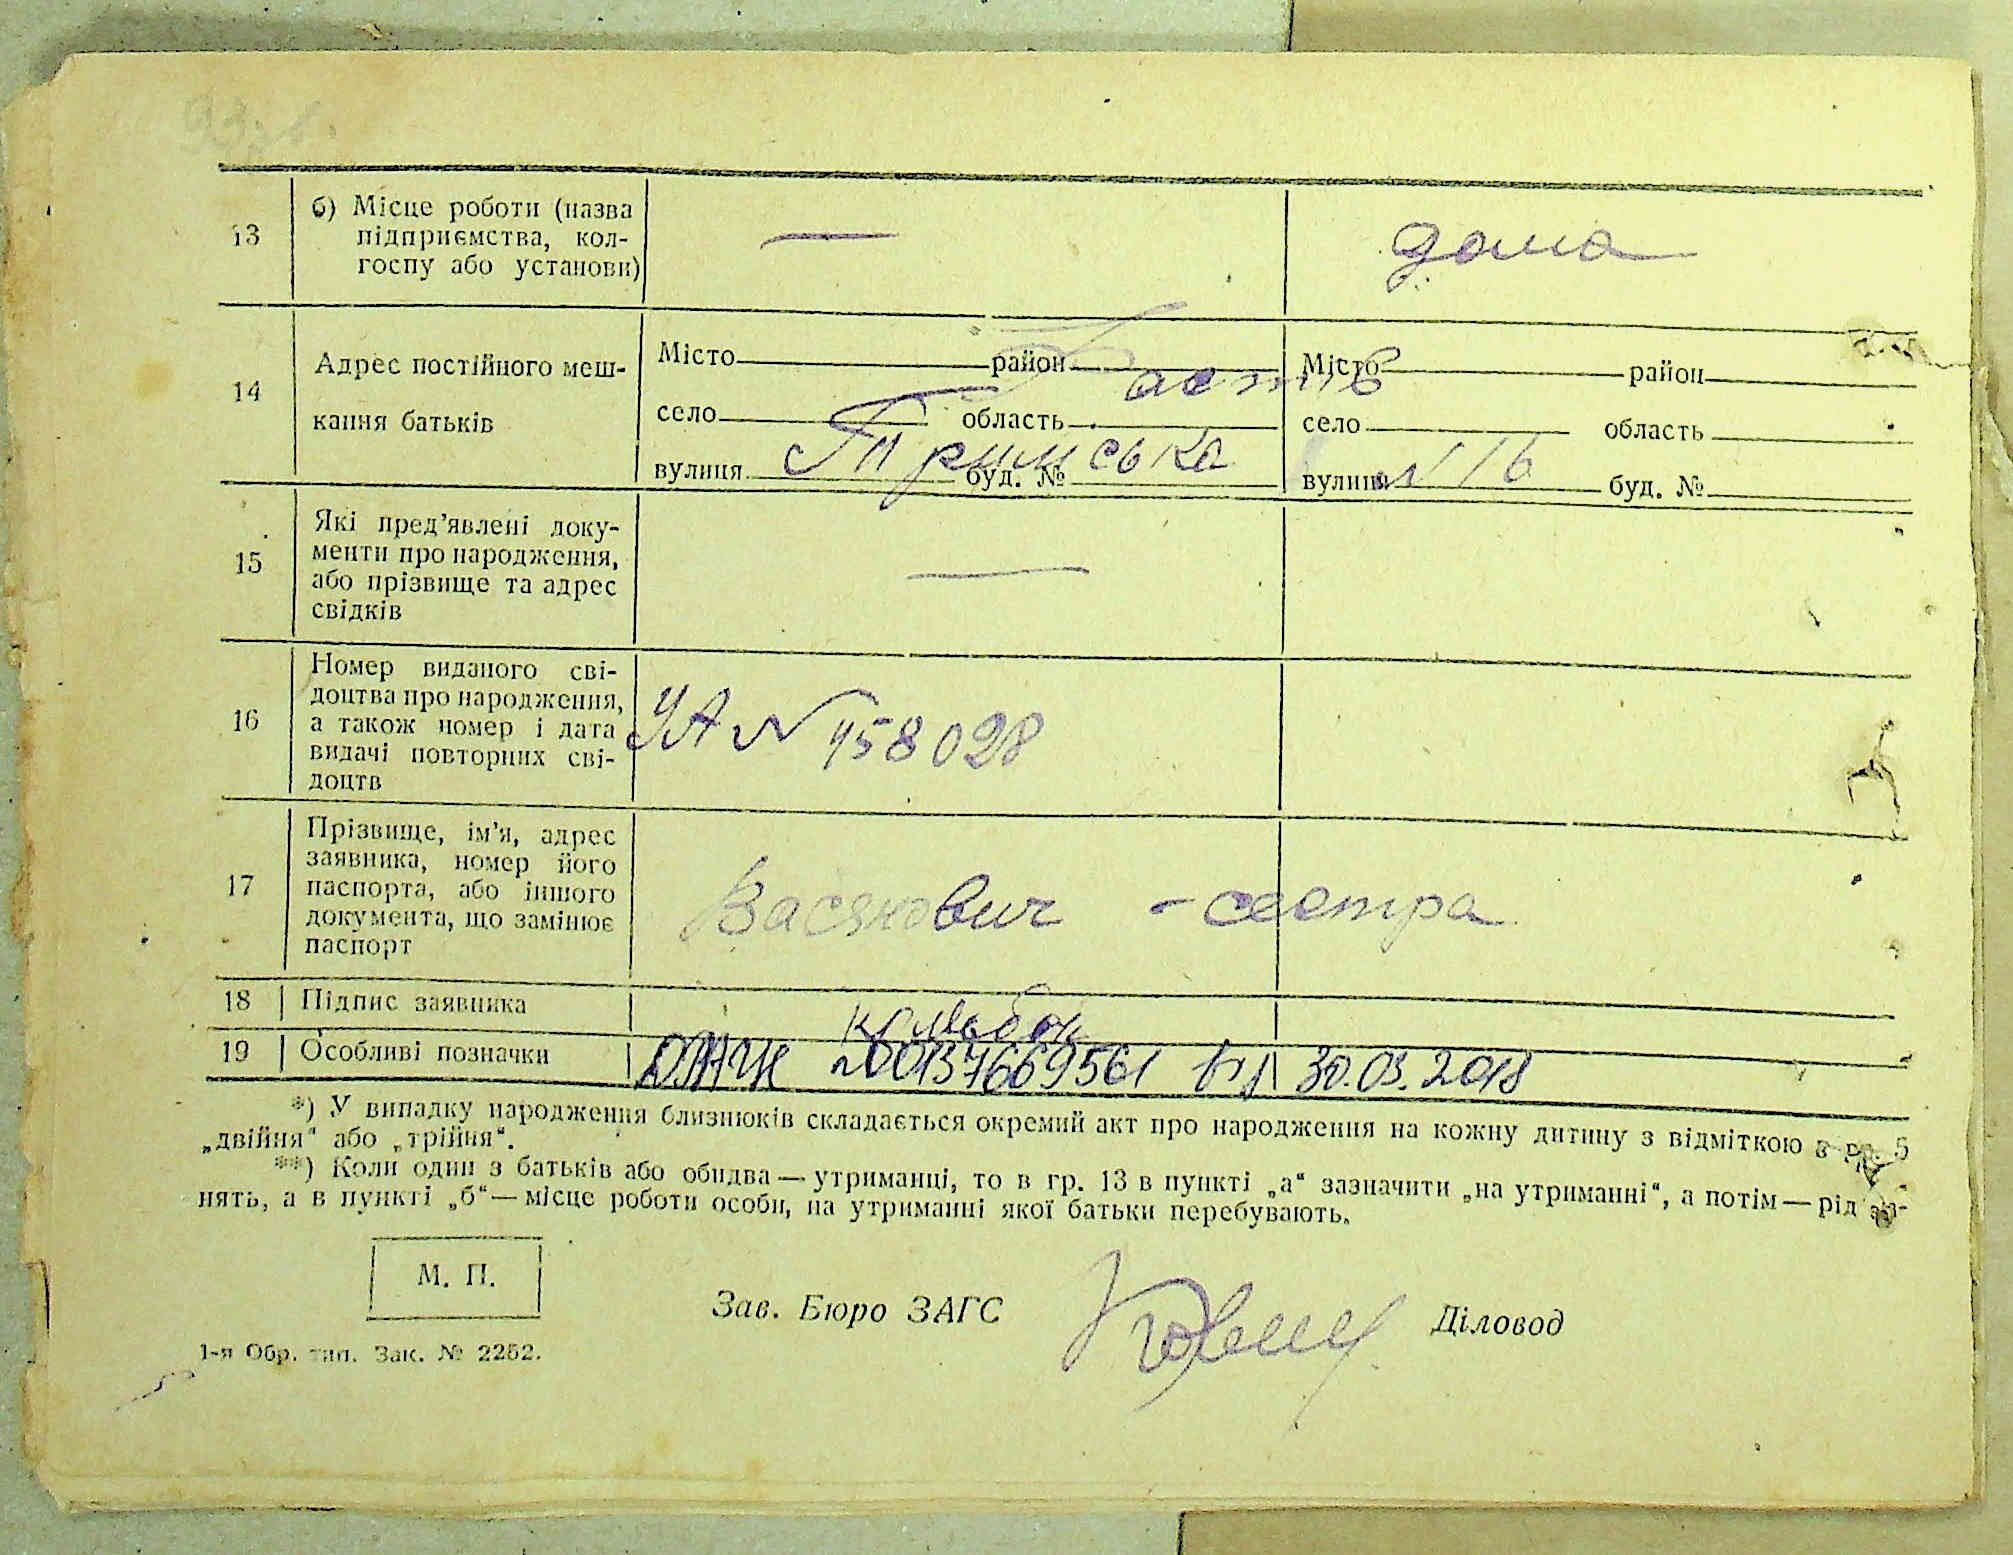 13
б) Місце роботи (назва
підприємства, кол-
госпу або установи)
—
дома
14
Адрес постійного меш-
кання батьків
Місто район
Фастів
село область
вулиця буд. №
Місто район
село область
вулиця буд. №
№ 16
15
Які пред’явлені доку-
менти про народження,
або прізвище та адрес
свідків
—
16
Номер виданого сві-
доцтва про народження,
а також номер і дата
видачі повторних сві-
доцтв
УА № 458028
17
Прізвище, ім’я, адрес
заявника, номер його
паспорта, або іншого
документа, що замінює
паспорт
Васянович - сестра
18 Підпис заявника
19 Особливі позначки
200137669561 від 30.03.2018
*) У випадку народження близнюків складається окремий акт про народження на кожну дитину з відміткою в гр. 5
„двійня“ або „трійня“.
**) Коли один з батьків або обидва — утриманці, то в гр. 13 в пункті „а“ зазначити „на утриманні“, а потім — рід за-
нять, а в пункті „б“ — місце роботи особи, на утриманні якої батьки перебувають.
М. П.
Зав. Бюро ЗАГС
Діловод
1-я Обр. тип. Зак. № 2252.